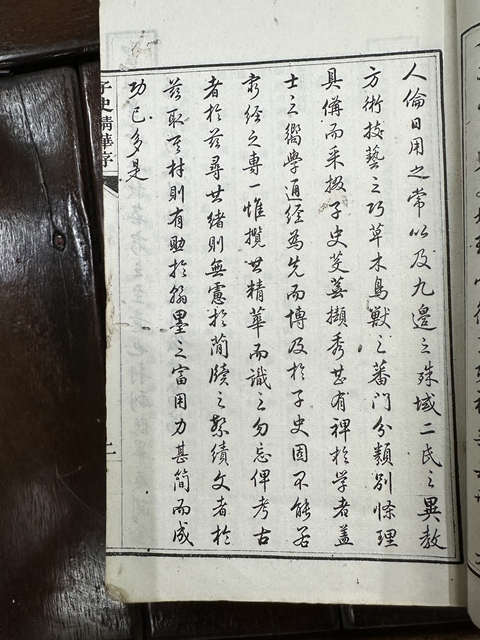 人倫日用之常以及九邊之殊域二氏之異教
方術技藝之巧草木鳥獸之蕃門分類別條理
具備而采掇子史芟蕪擷秀甚有裨於學者蓋
士之嚮學通經為先而博及於子史固不能若
窮經之專一惟攬其精華而識之勿忘俾考古
者於茲尋其緒則無慮於簡牘之繁績文者於
茲取其材則有助於翰墨之富用力甚簡而成
功已多是
子史精華序
二